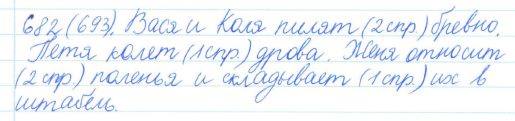 682 (693). Вася и Коля пилят (2 спр.) бревно.
Петя колет (1 спр.) дрова. Женя относит
(2 спр.) поленья и складывает (1 спр.) их в
штабель.